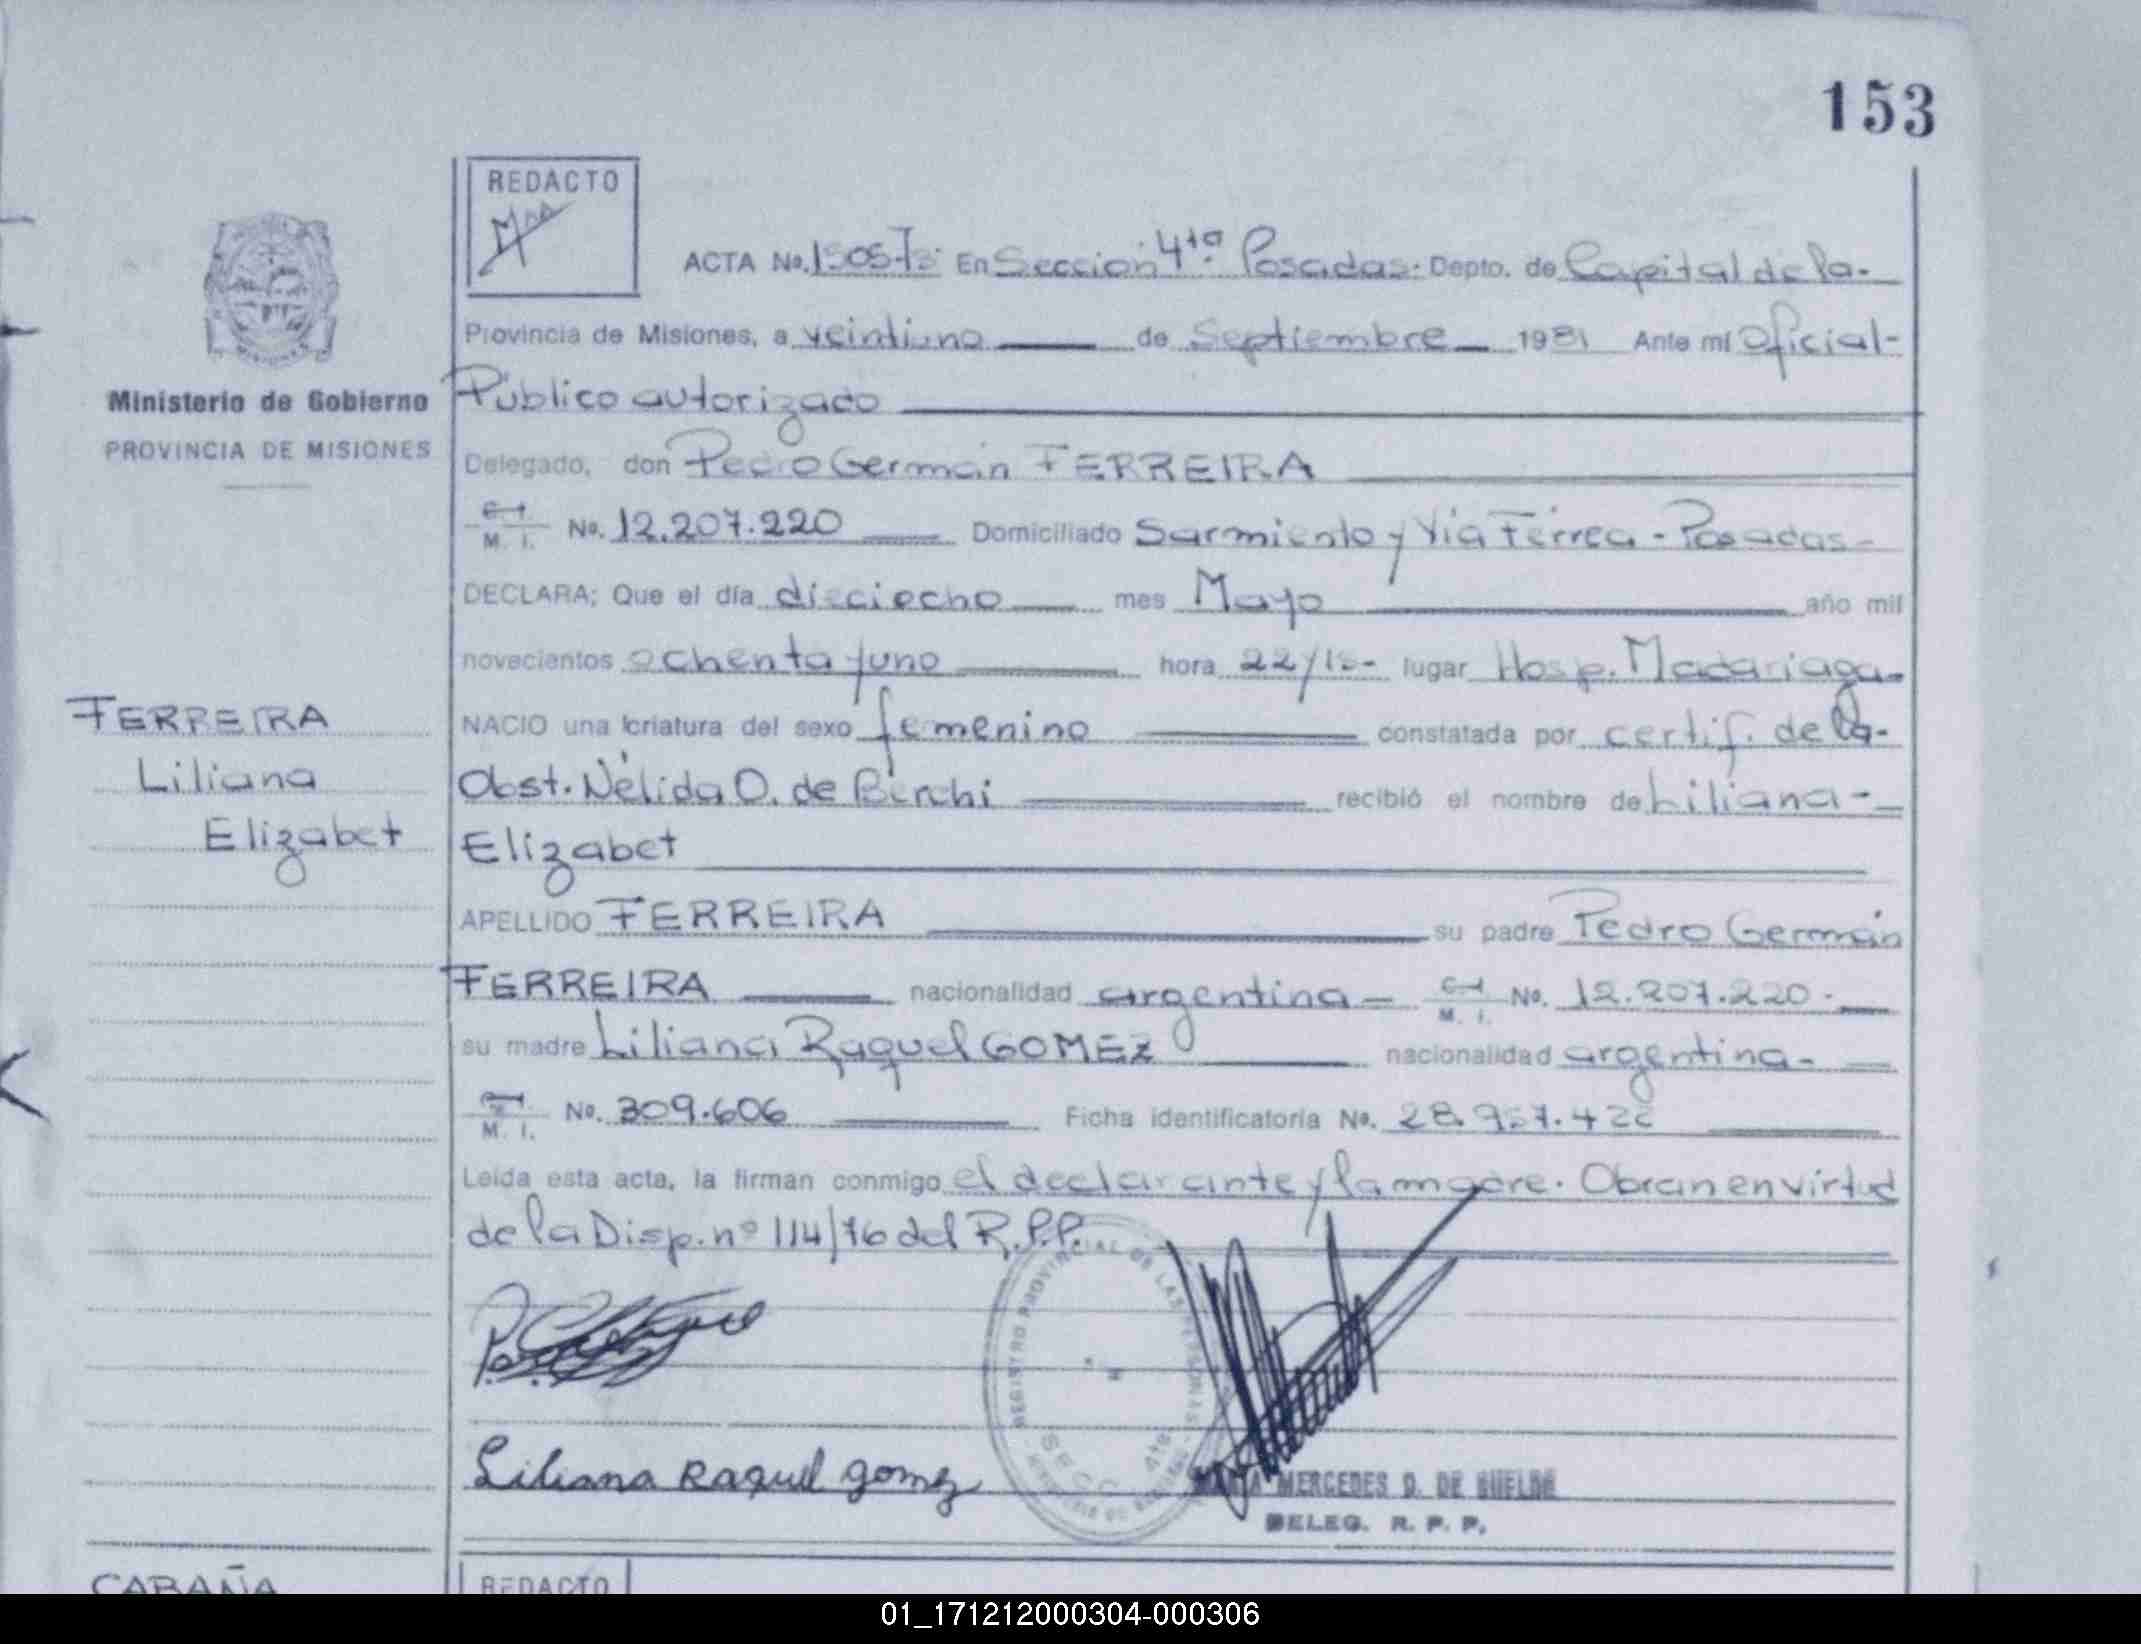 153
REDACTO
ACTA No. En Sección 4ta. Posadas. Depto. de Capital de la.
Provincia de Misiones, a veintiuno de Septiembre 1981 Ante mí Oficial-
Ministerio de Gobierno
PROVINCIA DE MISIONES
Público autorizado
Delegado, don Pedro Germán FERREIRA
C.I. M. I. No. 12.207.220 Domiciliado Sarmiento y Vía Férrea - Posadas-
DECLARA; Que el día dieciocho mes Mayo año mil
novecientos ochenta y uno hora lugar Hosp. Madariaga-
FERREIRA
Liliana
Elizabet
NACIO una criatura del sexo femenino constatada por certif. de la-
Obst. Nélida O. de recibió el nombre de Liliana-
Elizabet
APELLIDO FERREIRA su padre Pedro Germán
FERREIRA nacionalidad argentina- C.I. M. I. No. 12.207.220.
su madre Liliana Raquel GOMEZ nacionalidad argentina-
M. I. No. 309.606 Ficha identificatoria No.
Leída esta acta, la firman conmigo el declarante y la madre. Obran en virtud
de la Disp. nº 114/76 del R.P.P.
REGISTRO PROVINCIAL DE LAS PERSONAS
SECC. 4ta
Liliana Raquel gomez
MERCEDES D. DE
DELEG. R. P. P.
CABAÑA
REDACTO
01_171212000304-000306